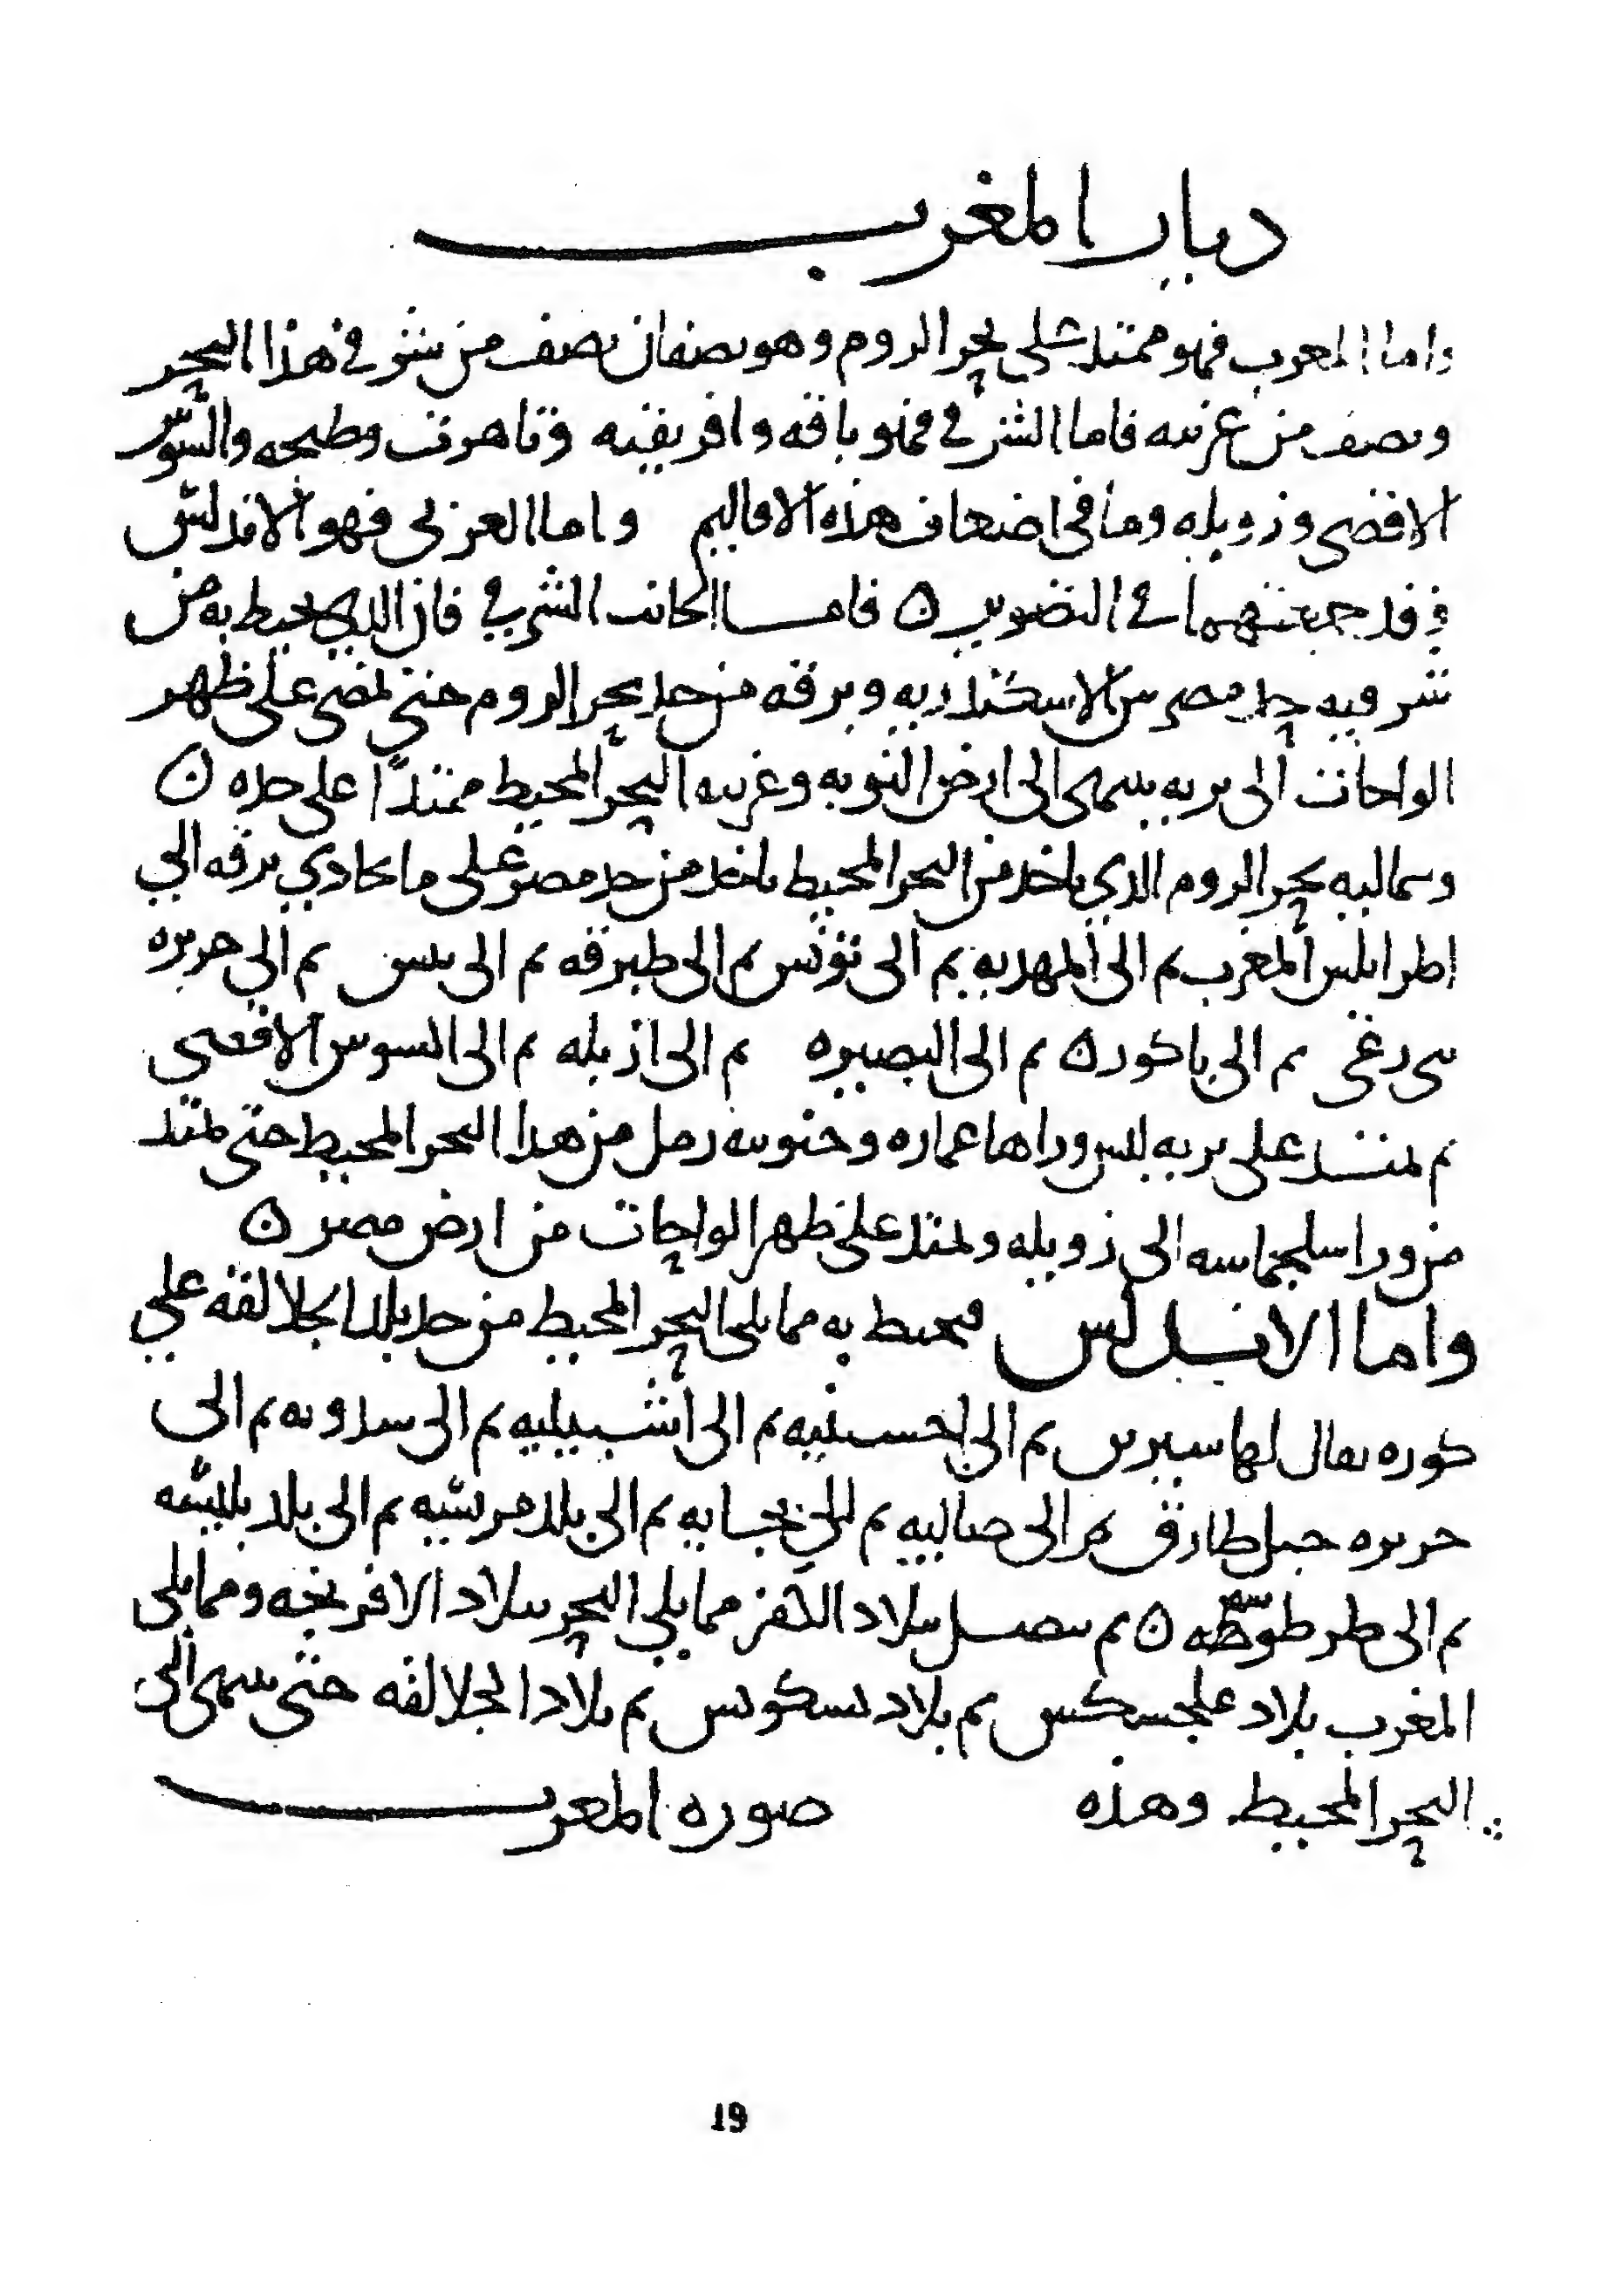 ديار المغرب
واما المغرب فهو ممتد على بحر الروم وهو نصفان نصف من شرقي هذا البحر
ونصف من غربيه فاما الشرقي فهو باقه وافريقيه وتاهرت وطنجه والسوس
الاقصى وزويله وما في اضعاف هذه الاقاليم واما الغربي فهو الاندلس
وقد جمعتهما في التصوير ن فاما الجانب الشرقي فان الذي يحيط به من
شرقيه حد مصر من الاسكندريه وبرقه من حد بحر الروم حتى تمضى على ظهر
الواحات الى بريه تنتهى الى ارض النوبه وغربيه البحر المحيط ممتدًا على حده ن
وشماليه بحر الروم الذي ياخذ من البحر المحيط ياخذ من حد مصر على ما يحاذي برقه الي
اطرابلس المغرب ثم الى المهديه ثم الى تونس ثم الى طبرقه ثم الى تنس ثم الى جزيره
بني زغنى ثم الى باكور ن ثم الى البصيره ثم الى ازيله ثم الى السوس الاقصى
ثم تمتد على بريه ليس وراها عماره وجنوبيه رمل من هذا البحر المحيط حتى تمتد
من ورا سلجماسه الى زويله وتمتد على ظهر الواحات من ارض مصر ن
واما الاندلس فيحيط به مما يلى البحر المحيط من حد بلد الجلالقه على
كوره يقال لها سبرين ثم الى اخسنبه ثم الى اشبيليه ثم الى سدونه ثم الى
جزيره جبل طارق ثم الى مالقيه ثم الى بجانه ثم الى بلاد مرسيه ثم الى بلد بلنسه
ثم الى طرطوسه ن ثم تتصل ببلاد الكفر مما يلي البحر ببلاد الافرنجه ومما يلي
المغرب بلاد علجسكس ثم بلاد بسكونس ثم بلاد الجلالقه حتى تنتهى الى
البحر المحيط وهذه صوره المغرب
19